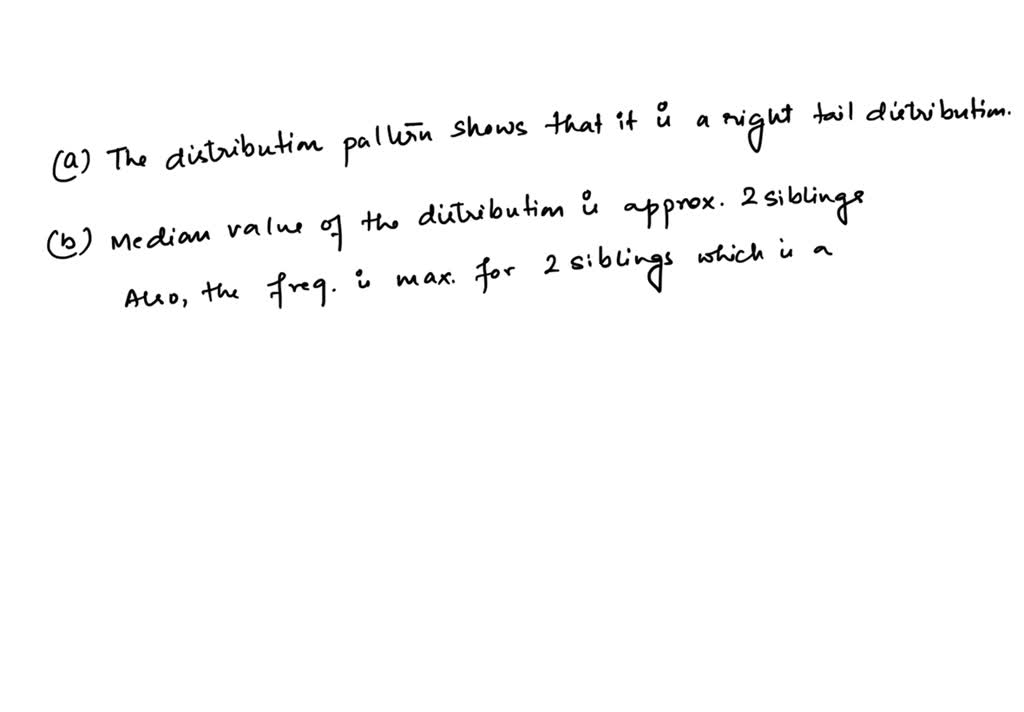 (a) The distribution pattern shows that it is a right tail distribution.
(b) Median value of the distribution is approx. 2 siblings
Also, the freq. is max. for 2 siblings which is a